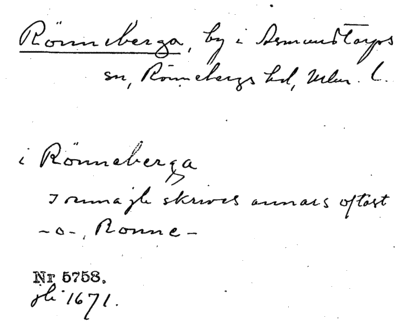 Rönneberga, by i Asmundtorps
sn, Rönnebergs hd, Mlm. L.
i Rönneberga
I summa jb skrives annars oftast
-o-, Ronne-
Nr 5758.
jb 1671.